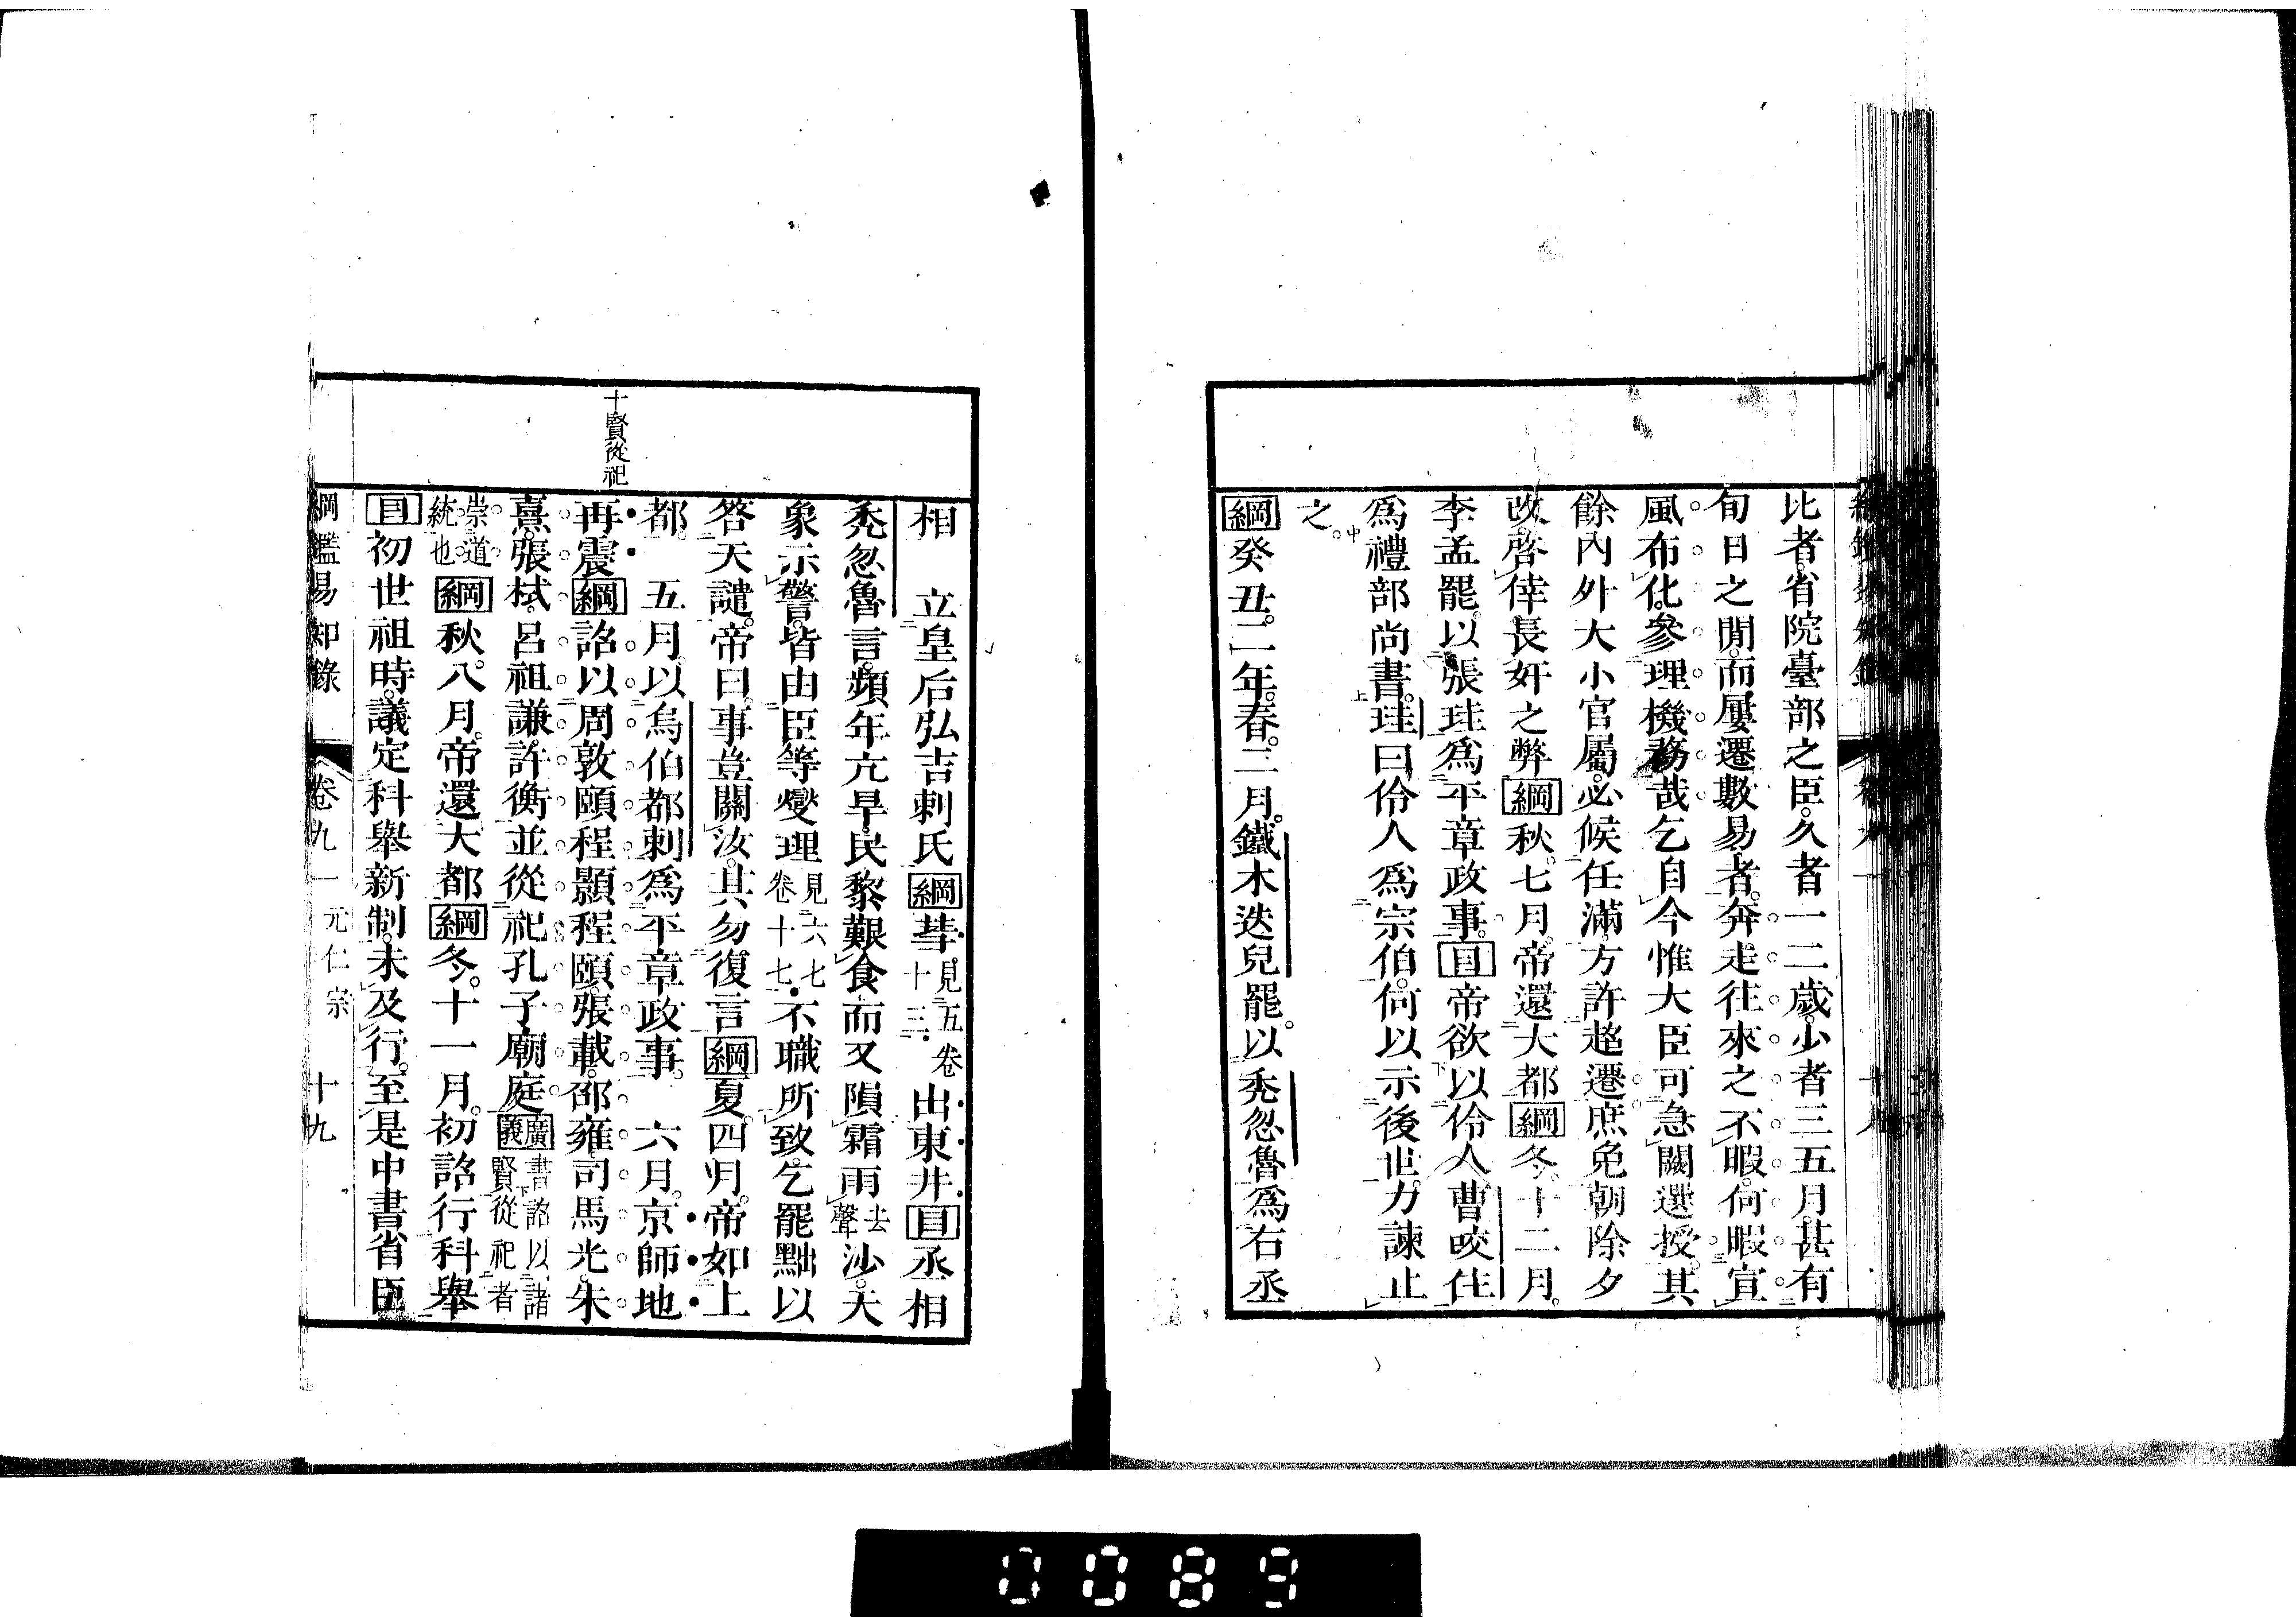 比者。省院臺部之臣。久者一二歲。少者三五月。甚有
旬日之閒。而屢遷數易者。奔走往來之不暇。何暇宣
風布化。參理機務哉。乞自今惟大臣可急闕選授。其
餘內外大小官屬。必候任滿。方許遷。庶免朝除夕
改。啓倖長奸之弊綱秋。七月。帝還大都綱冬。十二月。
李孟罷。以張珪爲平章政事。目帝欲以伶人曹咬住
爲禮部尚書。珪曰伶人爲宗伯。何以示後世。力諫止
之。
綱癸丑。二年。春。二月。鐵木迭兒罷。以禿忽魯爲右丞
相　立皇后弘吉剌氏綱彗見五卷十三出東井目丞相
禿忽魯言。頻年亢旱。民黎艱食。而又隕霜雨去聲沙。天
象示警。皆由臣等燮理見六七卷十七不職所致。乞罷黜以
答天譴。帝曰。事豈關汝。其勿復言綱夏。四月。帝如上
都。　五月。以烏伯都剌爲平章政事。　六月。京師地
再震綱詔以周敦頤程顥程頤張載。邵雍司馬光。朱
熹。張栻。呂祖謙。許衡。並從祀孔子廟庭廣義書詔以諸賢從祀者
崇道統也綱秋。八月。帝還大都綱冬。十一月。初詔行科舉
目初世祖時。議定科舉新制。未及行。至是中書省臣
十賢從祀
綱鑑易知錄　卷九一　元仁宗　十九
0089